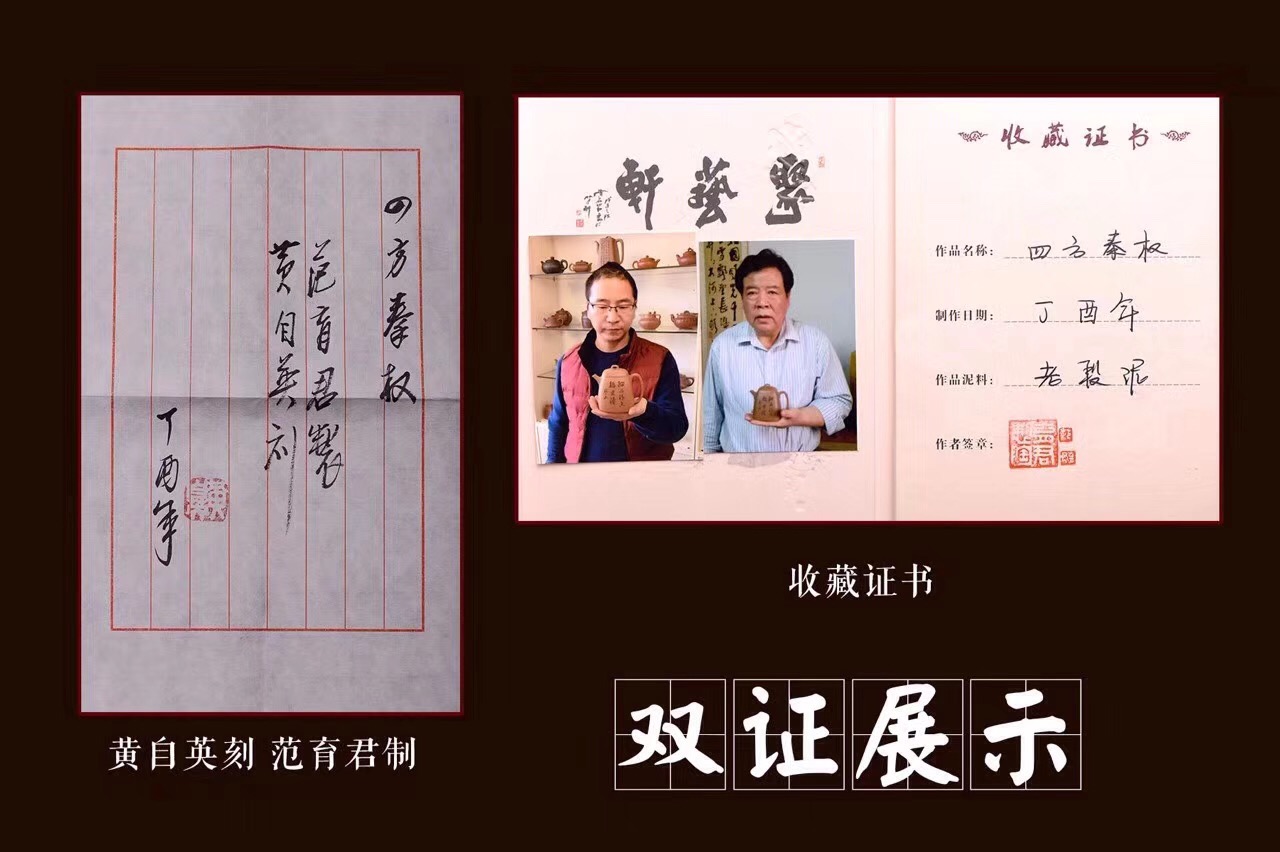 四方秦权
范育君製
黄自英刻
丁酉年
黄自英刻 范育君制
聚藝軒
收藏证书
作品名称: 四方秦权
制作日期: 丁酉年
作品泥料: 老段泥
作者签章:
收藏证书
双证展示